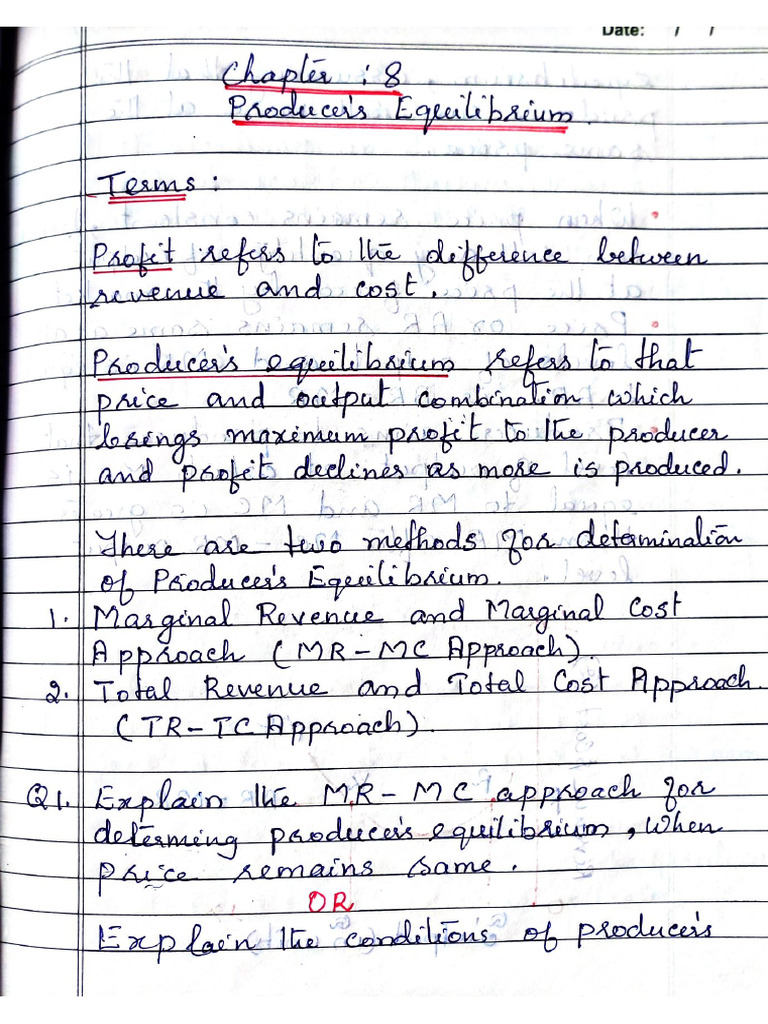 Date: / /
Chapter : 8
Producer's Equilibrium.
Terms:
Profit refers to the difference between
revenue and cost.
Producer's equilibrium refers to that
price and output combination which
brings maximum profit to the producer
and profit declines as more is produced.
There are two methods for determination
of Producer's Equilibrium.
1. Marginal Revenue and Marginal Cost
Approach (MR-MC Approach).
2. Total Revenue and Total Cost Approach.
(TR-TC Approach).
Q1. Explain the MR-MC approach for
determing producer's equilibrium, when
price remains same.
OR
Explain the conditions of producer's